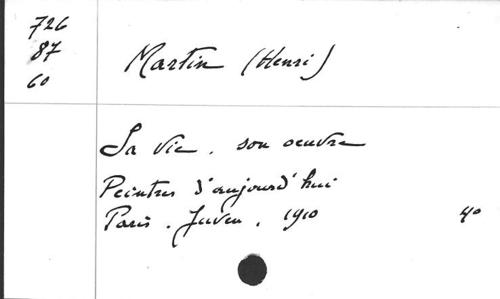 726
87
60
Martin (Henri)
Sa vie, son oeuvre
Peintres d'aujourd'hui
Paris. Juven, 1910 40